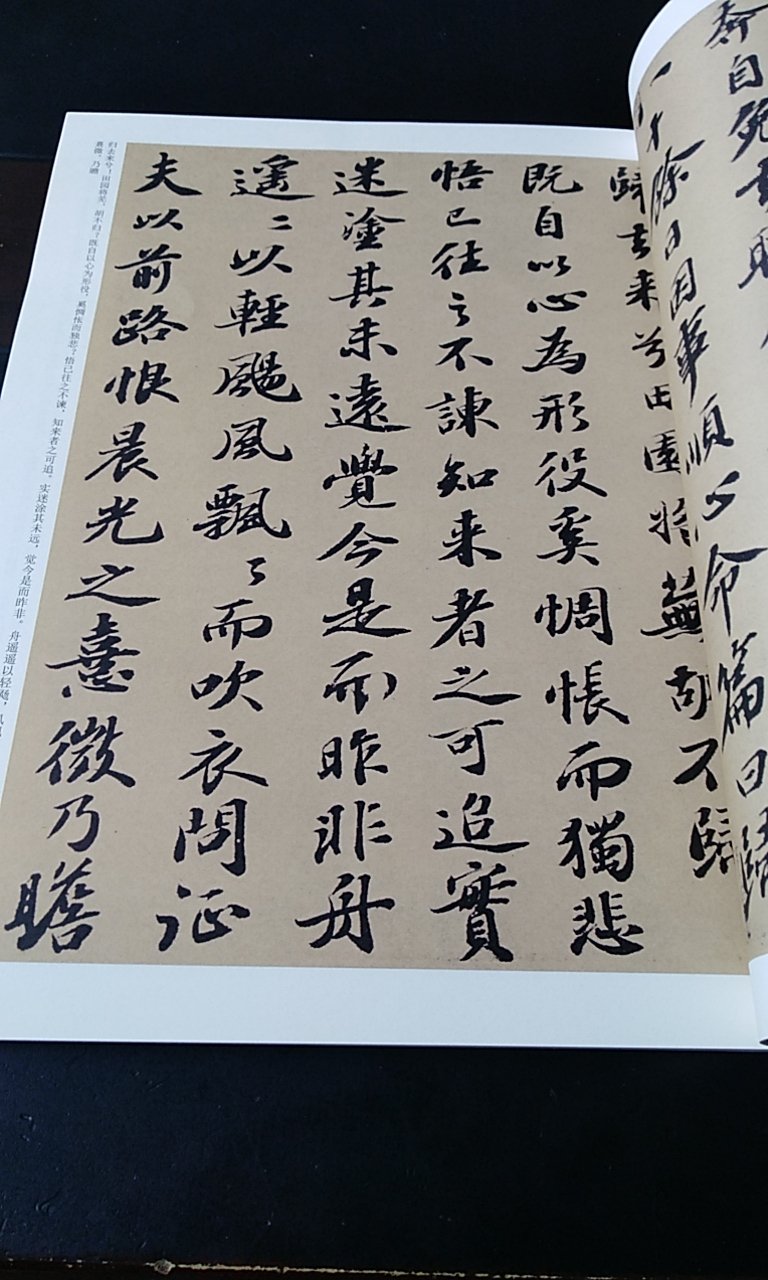 奔自免去職
十餘日因事順心命篇曰歸
歸去来兮田園将蕪胡不歸
既自以心為形役奚惆悵而獨悲
悟已往之不諫知来者之可追實
迷塗其未遠覺今是而昨非舟
遥〻以輕颺風飄〻而吹衣問征
夫以前路恨晨光之憙微乃瞻
归去来兮！田园将芜，胡不归？既自以心为形役，奚惆怅而独悲？悟已往之不谏，知来者之可追。实迷涂其未远，觉今是而昨非。舟遥遥以轻飏，
熹微。乃瞻